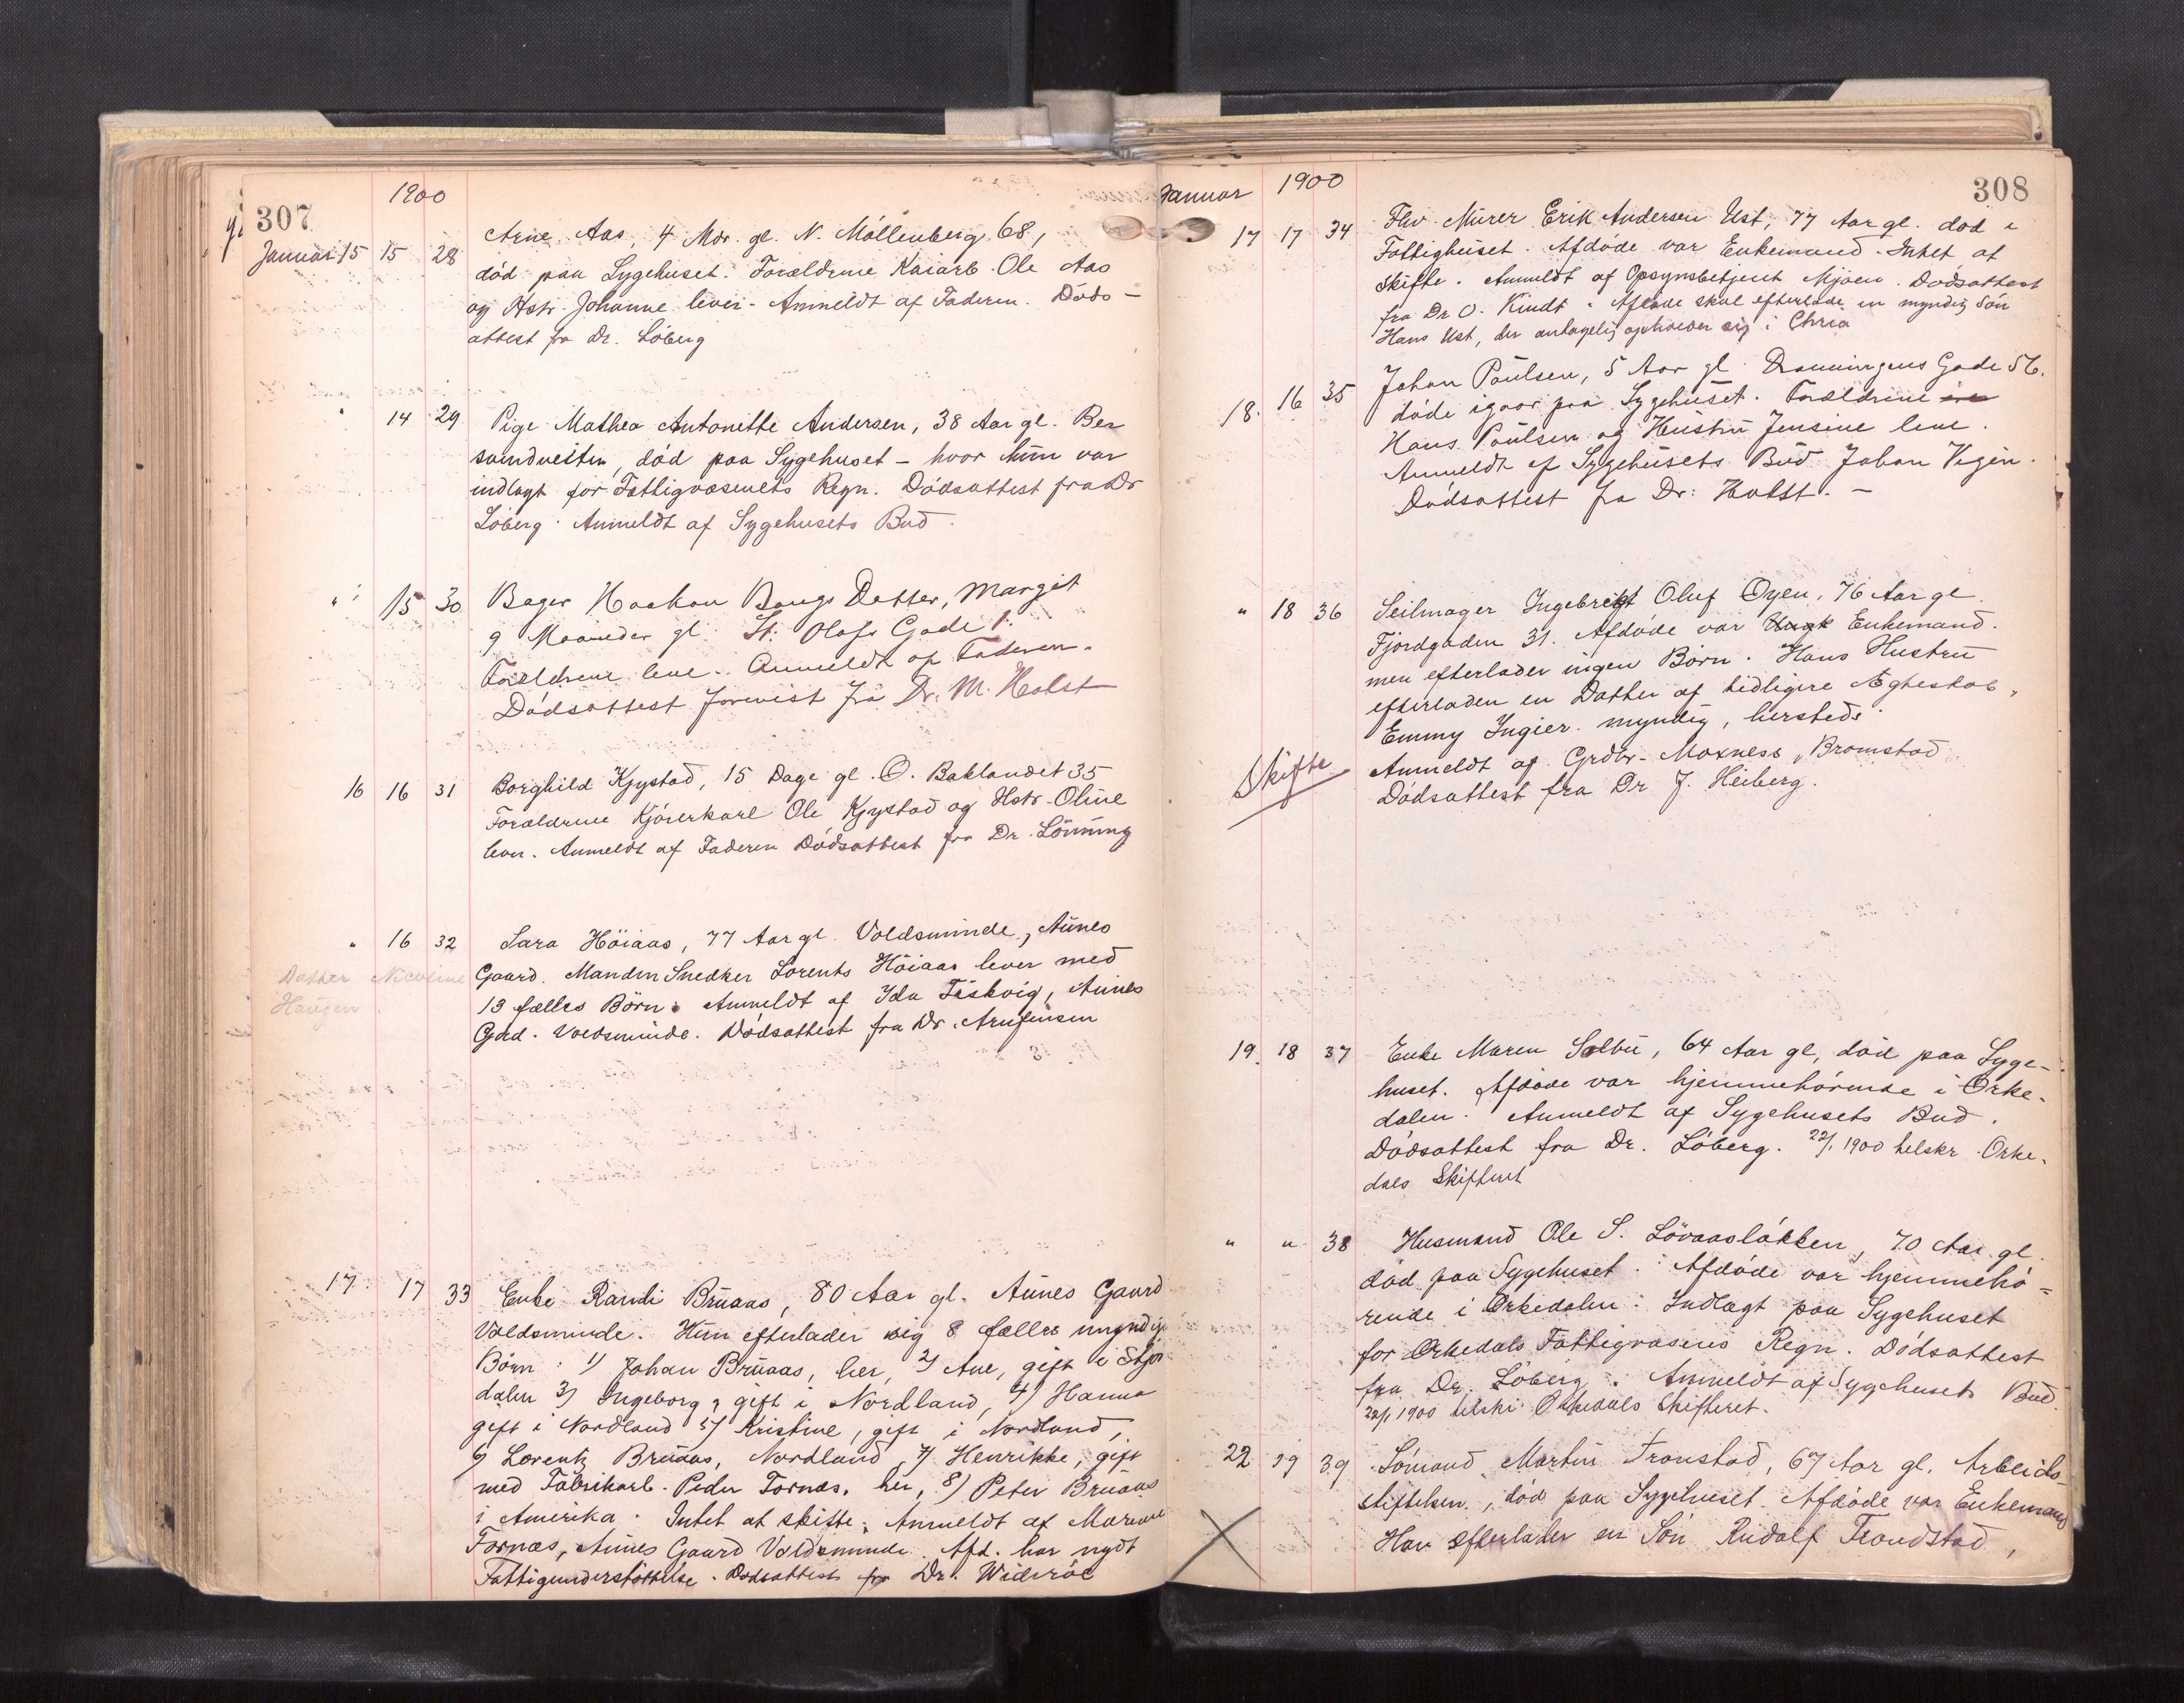 307
1900
Januar 15 15 28 Arne Aas, 4 Mdr. gl. N. Möllenberg 68,
död paa Sygehuset. Forældrene Kaiarb. Ole Aas
og Hstr. Johanne lever. Anmeldt af Faderen. Döds-
attest fra Dr. Löberg
" 14 29 Pige Mathea Antonette Andersen, 38 Aar gl. Ber
sundveiten, död paa Sygehuset - hvor hun var
indlagt for Fattigvæsenets Regn. Dödsattest fra Dr
Löberg. Anmeldt af Sygehusets Bud.
" 15 30 Bager Haakon Bangs Datter, Margit
9 Maaneder gl. St. Olafs Gade 1.
Forældrene leve. Anmeldt af Faderen.
Dödsattest forevist fra Dr. M. Holst
16 16 31 Borghild Kjystad, 15 Dage gl. Ö. Baklandet 35
Forældrene Kjörerkarl Ole Kjystad og Hstr. Oline
lever. Anmeldt af Faderen Dödsattest fra Dr. Lönning
" 16 32 Sara Höiaas, 77 Aar gl. Voldsminde, Aunes
Datter Nicoline Gaard. Manden Snedker Lorents Höiaas lever med
Haugen 13 fælles Börn. Anmeldt af Ida Fiskvig, Aunes
Gård. Voldsminde. Dödsattest fra Dr. Arnfinsen
17 17 33 Enke Randi Bruaas, 80 Aar gl. Aunes Gaard
Voldsminde. Hun efterlader sig 8 fælles myndige
Börn: 1) Johan Bruaas, her, 2) Ane, gift i Stjör-
dalen 3) Ingeborg, gift i Nordland, 4) Hanna
gift i Nordland 5) Kristine, gift i Nordland,
6) Lorentz Bruaas, Nordland, 7) Henrikke, gift
med Fabrikarb. Peder Fornæs, her, 8) Peter Bruaas
i Amerika. Intet at skifte. Anmeldt af
Fornæs, Aunes Gaard Voldsminde. Afd. har nydt
Fattigunderstöttelse. Dödsattest fra Dr. Wideröe
Januar 1900
308
17 17 34 Fhv. Murer Erik Andersen Ust, 77 Aar gl. död i
Fattighuset. Afdöde var Enkemand. Intet at
skifte. Anmeldt af Opsynsbetjent Mjöen. Dodsattest
fra Dr O. Kindt. Afdöde skal efterlade en myndig Sön
Hans Ust, der antagelig opholder sig i Chria
18. 16 35 Johan Paulsen, 5 Aar gl. Dronningens Gade 56.
döde igaar paa Sygehuset. Forældrene
Hans Paulsen og Hustru Jensine leve.
Anmeldt af Sygehusets Bud Johan Vigen.
Dödsattest fra Dr: Holst. -
" 18 36 Seilmager Ingebrigt Oluf Oyen, 76 Aar gl.
Fjordgaden 31. Afdöde var Enkemand.
men efterlader ingen Börn. Hans Hustru
efterladen en Datter af tidligere Ægteskab,
Emmy Ingier. myndig, hersteds.
Skifte Anmeldt af Grdbr. Moxness, Bromstad
Dödsattest fra Dr J. Heiberg.
19 18 37 Enke Maren Selbu, 64 Aar gl, död paa Syge-
huset. Afdöde var hjemmehörende i Orke-
dalen. Anmeldt af Sygehusets Bud.
Dödsattest fra Dr. Löberg. 22/1 1900 tilskr. Orke-
dals Skifteret
" " 38 Husmand Ole S. Lövaaslökken, 70 Aar gl.
död paa Sygehuset. Afdöde var hjemmehö-
rende i Orkedalen: Indlagt paa Sygehuset
for Orkedals Fattigvæsens Regn. Dödsattest
fra Dr. Löberg. Anmeldt af Sygehusets Bud.
22/1 1900 tilskr. Orkedals Skifteret.
22 19 39 Sömand Martin Tronstad, 67 Aar gl. Arbeids-
stiftelsen, död paa Sygehuset. Afdöde var Enkemand
Han efterlader en Sön Rudolf Trondstad,